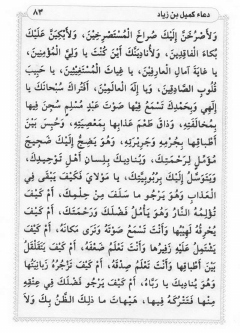 دعاء كميل بن زياد
٨٣
وَلَأَصْرُخَنَّ إِلَيْكَ صُراخَ الْمُسْتَصْرِخينَ، وَلَأَبْكِيَنَّ عَلَيْكَ
بُكاءَ الْفاقِدينَ، وَلَأُنادِيَنَّكَ أَيْنَ كُنْتَ يا وَلِيَّ الْمُؤْمِنينَ،
يا غايَةَ آمالِ الْعارِفينَ، يا غِياثَ الْمُسْتَغيثينَ، يا حَبيبَ
قُلُوبِ الصَّادِقينَ، وَيا إِلٰهَ الْعالَمينَ، أَفَتُراكَ سُبْحانَكَ يا
إِلٰهي وَبِحَمْدِكَ تَسْمَعُ فيها صَوْتَ عَبْدٍ مُسْلِمٍ سُجِنَ فيها
بِمُخالَفَتِهِ، وَذاقَ طَعْمَ عَذابِها بِمَعْصِيَتِهِ، وَحُبِسَ بَيْنَ
أَطْباقِها بِجُرْمِهِ وَجَريرَتِهِ، وَهُوَ يَضِجُّ إِلَيْكَ ضَجيجَ
مُؤَمِّلٍ لِرَحْمَتِكَ، وَيُناديكَ بِلِسانِ أَهْلِ تَوْحيدِكَ،
وَيَتَوَسَّلُ إِلَيْكَ بِرُبُوبِيَّتِكَ، يا مَوْلايَ فَكَيْفَ يَبْقى في
الْعَذابِ وَهُوَ يَرْجُو ما سَلَفَ مِنْ حِلْمِكَ، أَمْ كَيْفَ
تُؤْلِمُهُ النَّارُ وَهُوَ يَأْمُلُ فَضْلَكَ وَرَحْمَتَكَ، أَمْ كَيْفَ
يُحْرِقُهُ لَهيبُها وَأَنْتَ تَسْمَعُ صَوْتَهُ وَتَرى مَكانَهُ، أَمْ كَيْفَ
يَشْتَمِلُ عَلَيْهِ زَفيرُها وَأَنْتَ تَعْلَمُ ضَعْفَهُ، أَمْ كَيْفَ يَتَقَلْقَلُ
بَيْنَ أَطْباقِها وَأَنْتَ تَعْلَمُ صِدْقَهُ، أَمْ كَيْفَ تَزْجُرُهُ زَبانِيَتُها
وَهُوَ يُناديكَ يا رَبَّاهُ، أَمْ كَيْفَ يَرْجُو فَضْلَكَ في عِتْقِهِ
مِنْها فَتَتْرُكَهُ فيها، هَيْهاتَ ما ذلِكَ الظَّنُّ بِكَ وَلاَ